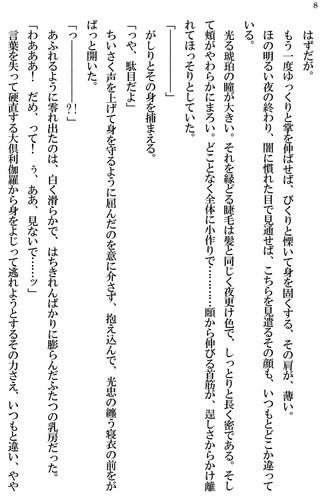 8
はずだが。
もう一度ゆっくりと掌を伸ばせば、びくりと慄いて身を固くする、その肩が、薄い。
ほの明るい夜の終わり、闇に慣れた目で見通せば、こちらを見遣るその顔も、いつもとどこか違って
いる。
光る琥珀の瞳が大きい。それを縁どる睫毛は髪と同じく夜更け色で、しっとりと長く密である。そし
て頬がやわらかにまろい。どことなく全体に小作りで………頤から伸びる首筋が、逞しさからかけ離
れてほっそりとしていた。
「――――――」
がしりとその身を捕まえる。
「っや、駄目だよ」
ちいさく声を上げて身を守るように屈んだのを意に介さず、抱え込んで、光忠の纏う寝衣の前をが
ばっと開いた。
「っ――――?!」
あふれるように零れ出たのは、白く滑らかで、はちきれんばかりに膨らんだふたつの乳房だった。
「わあああ！　だめ、って！　ぅ、ああ、見ないで……ッ」
言葉を失って硬直する大倶利伽羅から身をよじって逃れようとするその力さえ、いつもと違い、やや